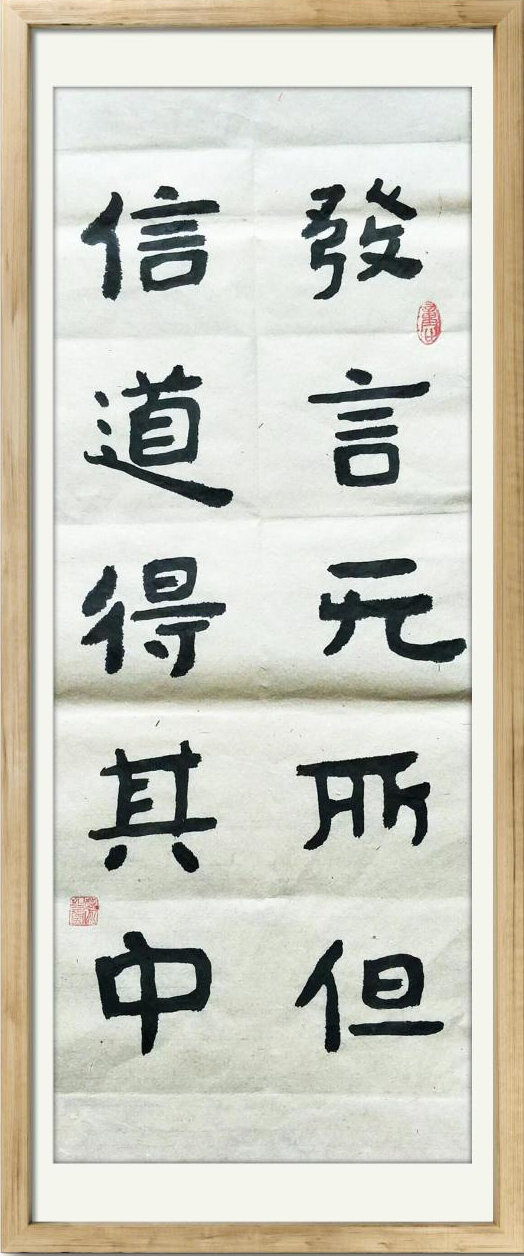 發言无所但
信道得其中